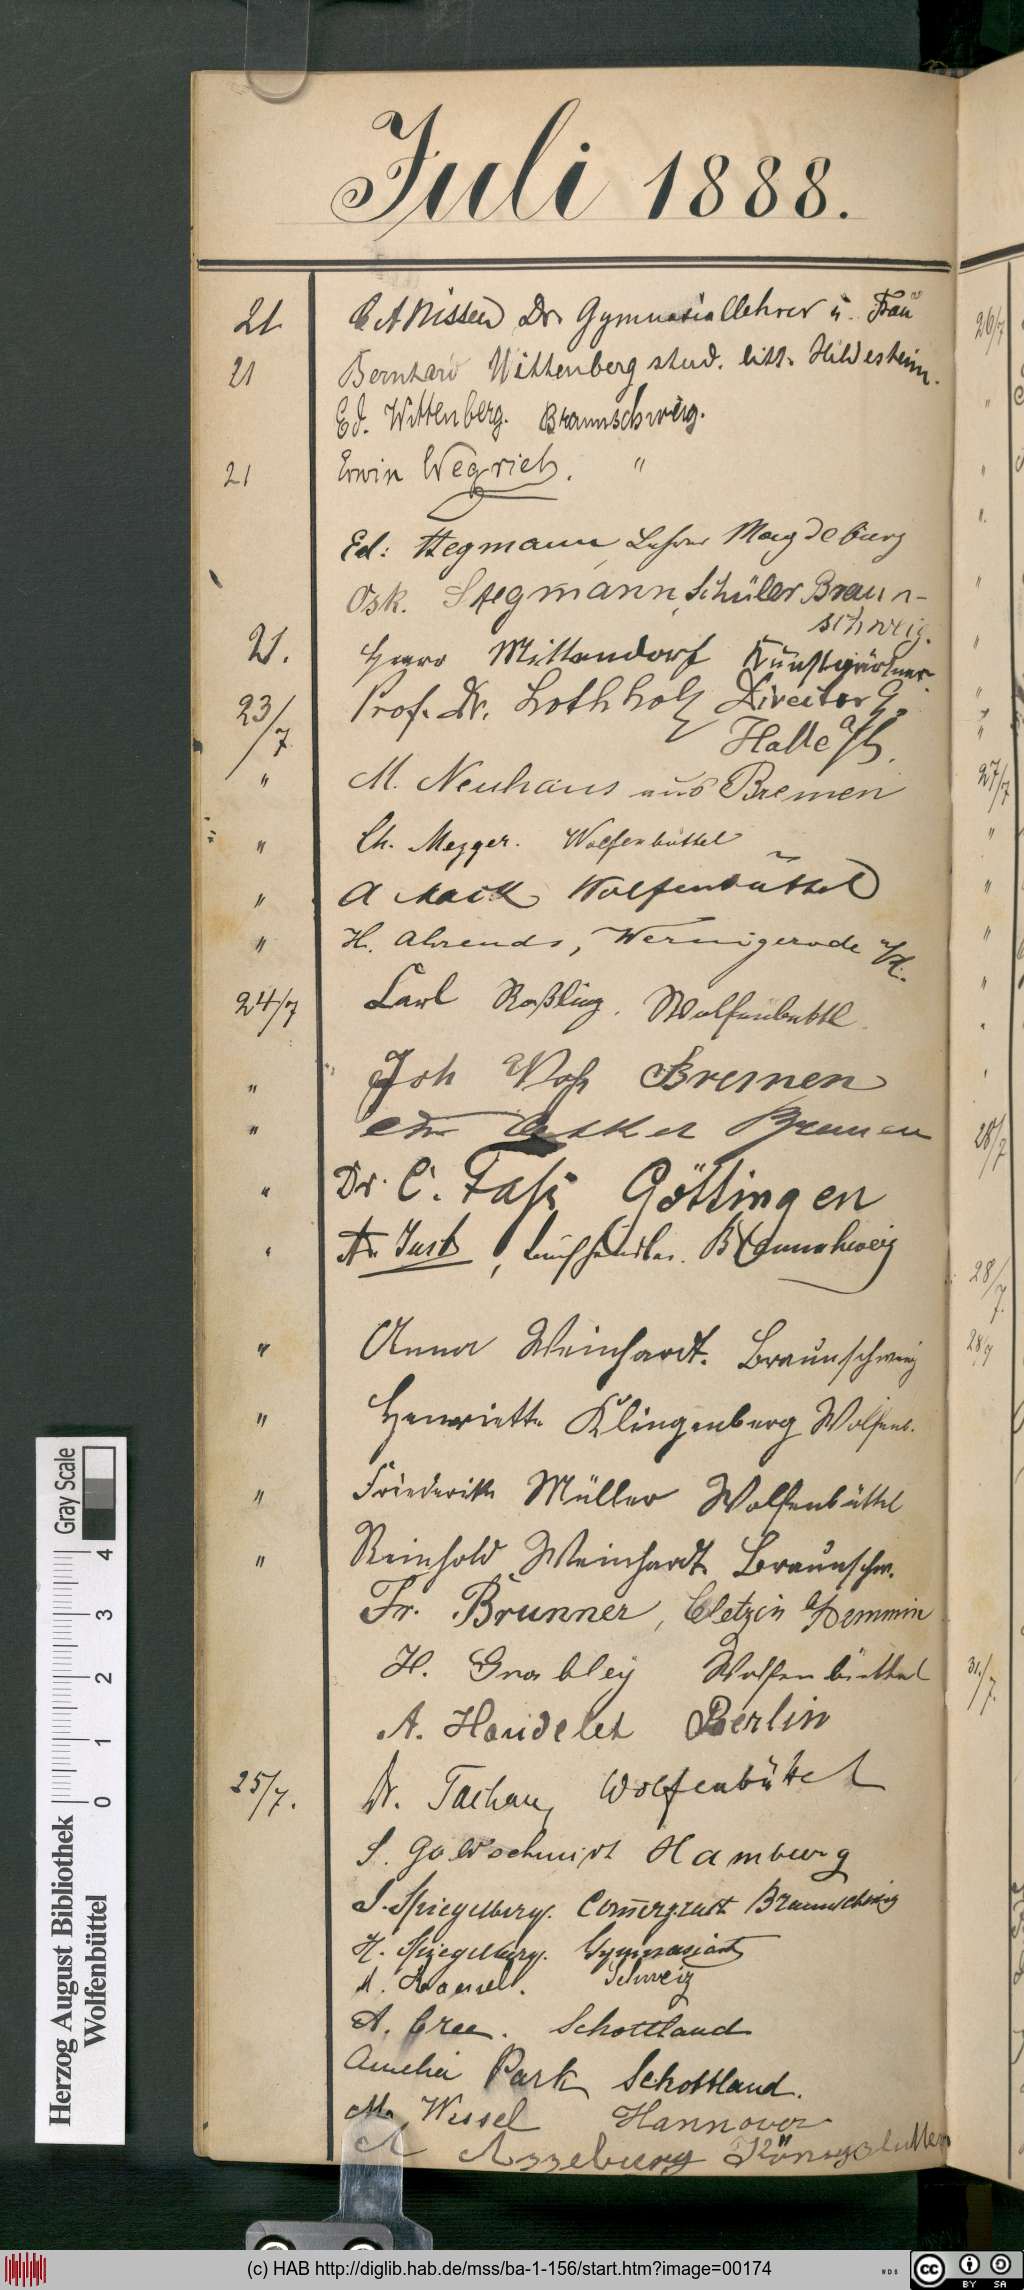 Juli 1888.
21 C A Nissen Dr. Gymnasiallehrer u. Frau
21 Bernhard Wittenberg stud. litt. Hildesheim.
Ed. Wittenberg. Braunschweig.
21 Erwin Wegrich. "
Ed: Stegmann Lehrer Magdeburg
Osk. Stegmann, Schüler Braun-
schweig.
21. Mittendorf Kunstgärtner
23/7 Prof. Dr. Lothholz Director
Halle a/S.
" M. Neuhaus aus Bremen
" Ch. Mezger. Wolfenbüttel
" A Mack Wolfenbüttel
" H. Ahrends, Wernigerode a/H.
24/7 Carl Roßling. Wolfenbüttel
" Joh Voß Bremen
" Bremen
" Dr. C. Faß Göttingen
" Just, Braunschweig
" Anna Weinhardt. Braunschweig
" Henriette Klingenberg Wolfenb.
" Friederike Müller Wolfenbüttel
" Reinhold Weinhardt Braunschw.
Fr. Brunner, Cletzin b/Demmin
H. Grabley Wolfenbüttel
A. Handelet Berlin
25/7. Dr. Wolfenbüttel
S. Goldschmidt Hamburg
S. Spiegelberg. Braunschweig
H. Spiegelberg. Gymnasiast
Schweiz
A. Cree. Schottland
Amelia Park Schottland.
M. Wessel Hannover
A Asseburg Königslutter
26/7
27/7
28/7
28/7.
28/7
31./7.
Gray Scale
0 1 2 3 4
Herzog August Bibliothek
Wolfenbüttel
(c) HAB http://diglib.hab.de/mss/ba-1-156/start.htm?image=00174
WDB
cc BY SA